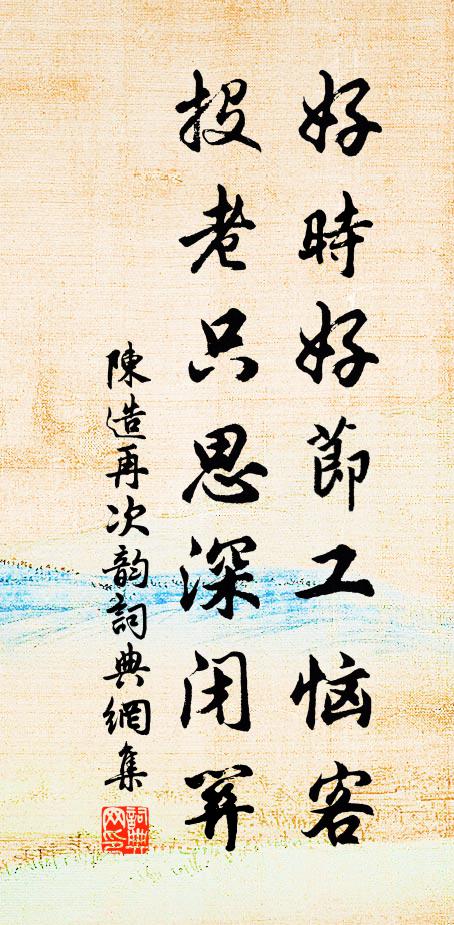 好時好節工恼客
投老只思深闭關
陳造再次韵詞典網集
詞典網印